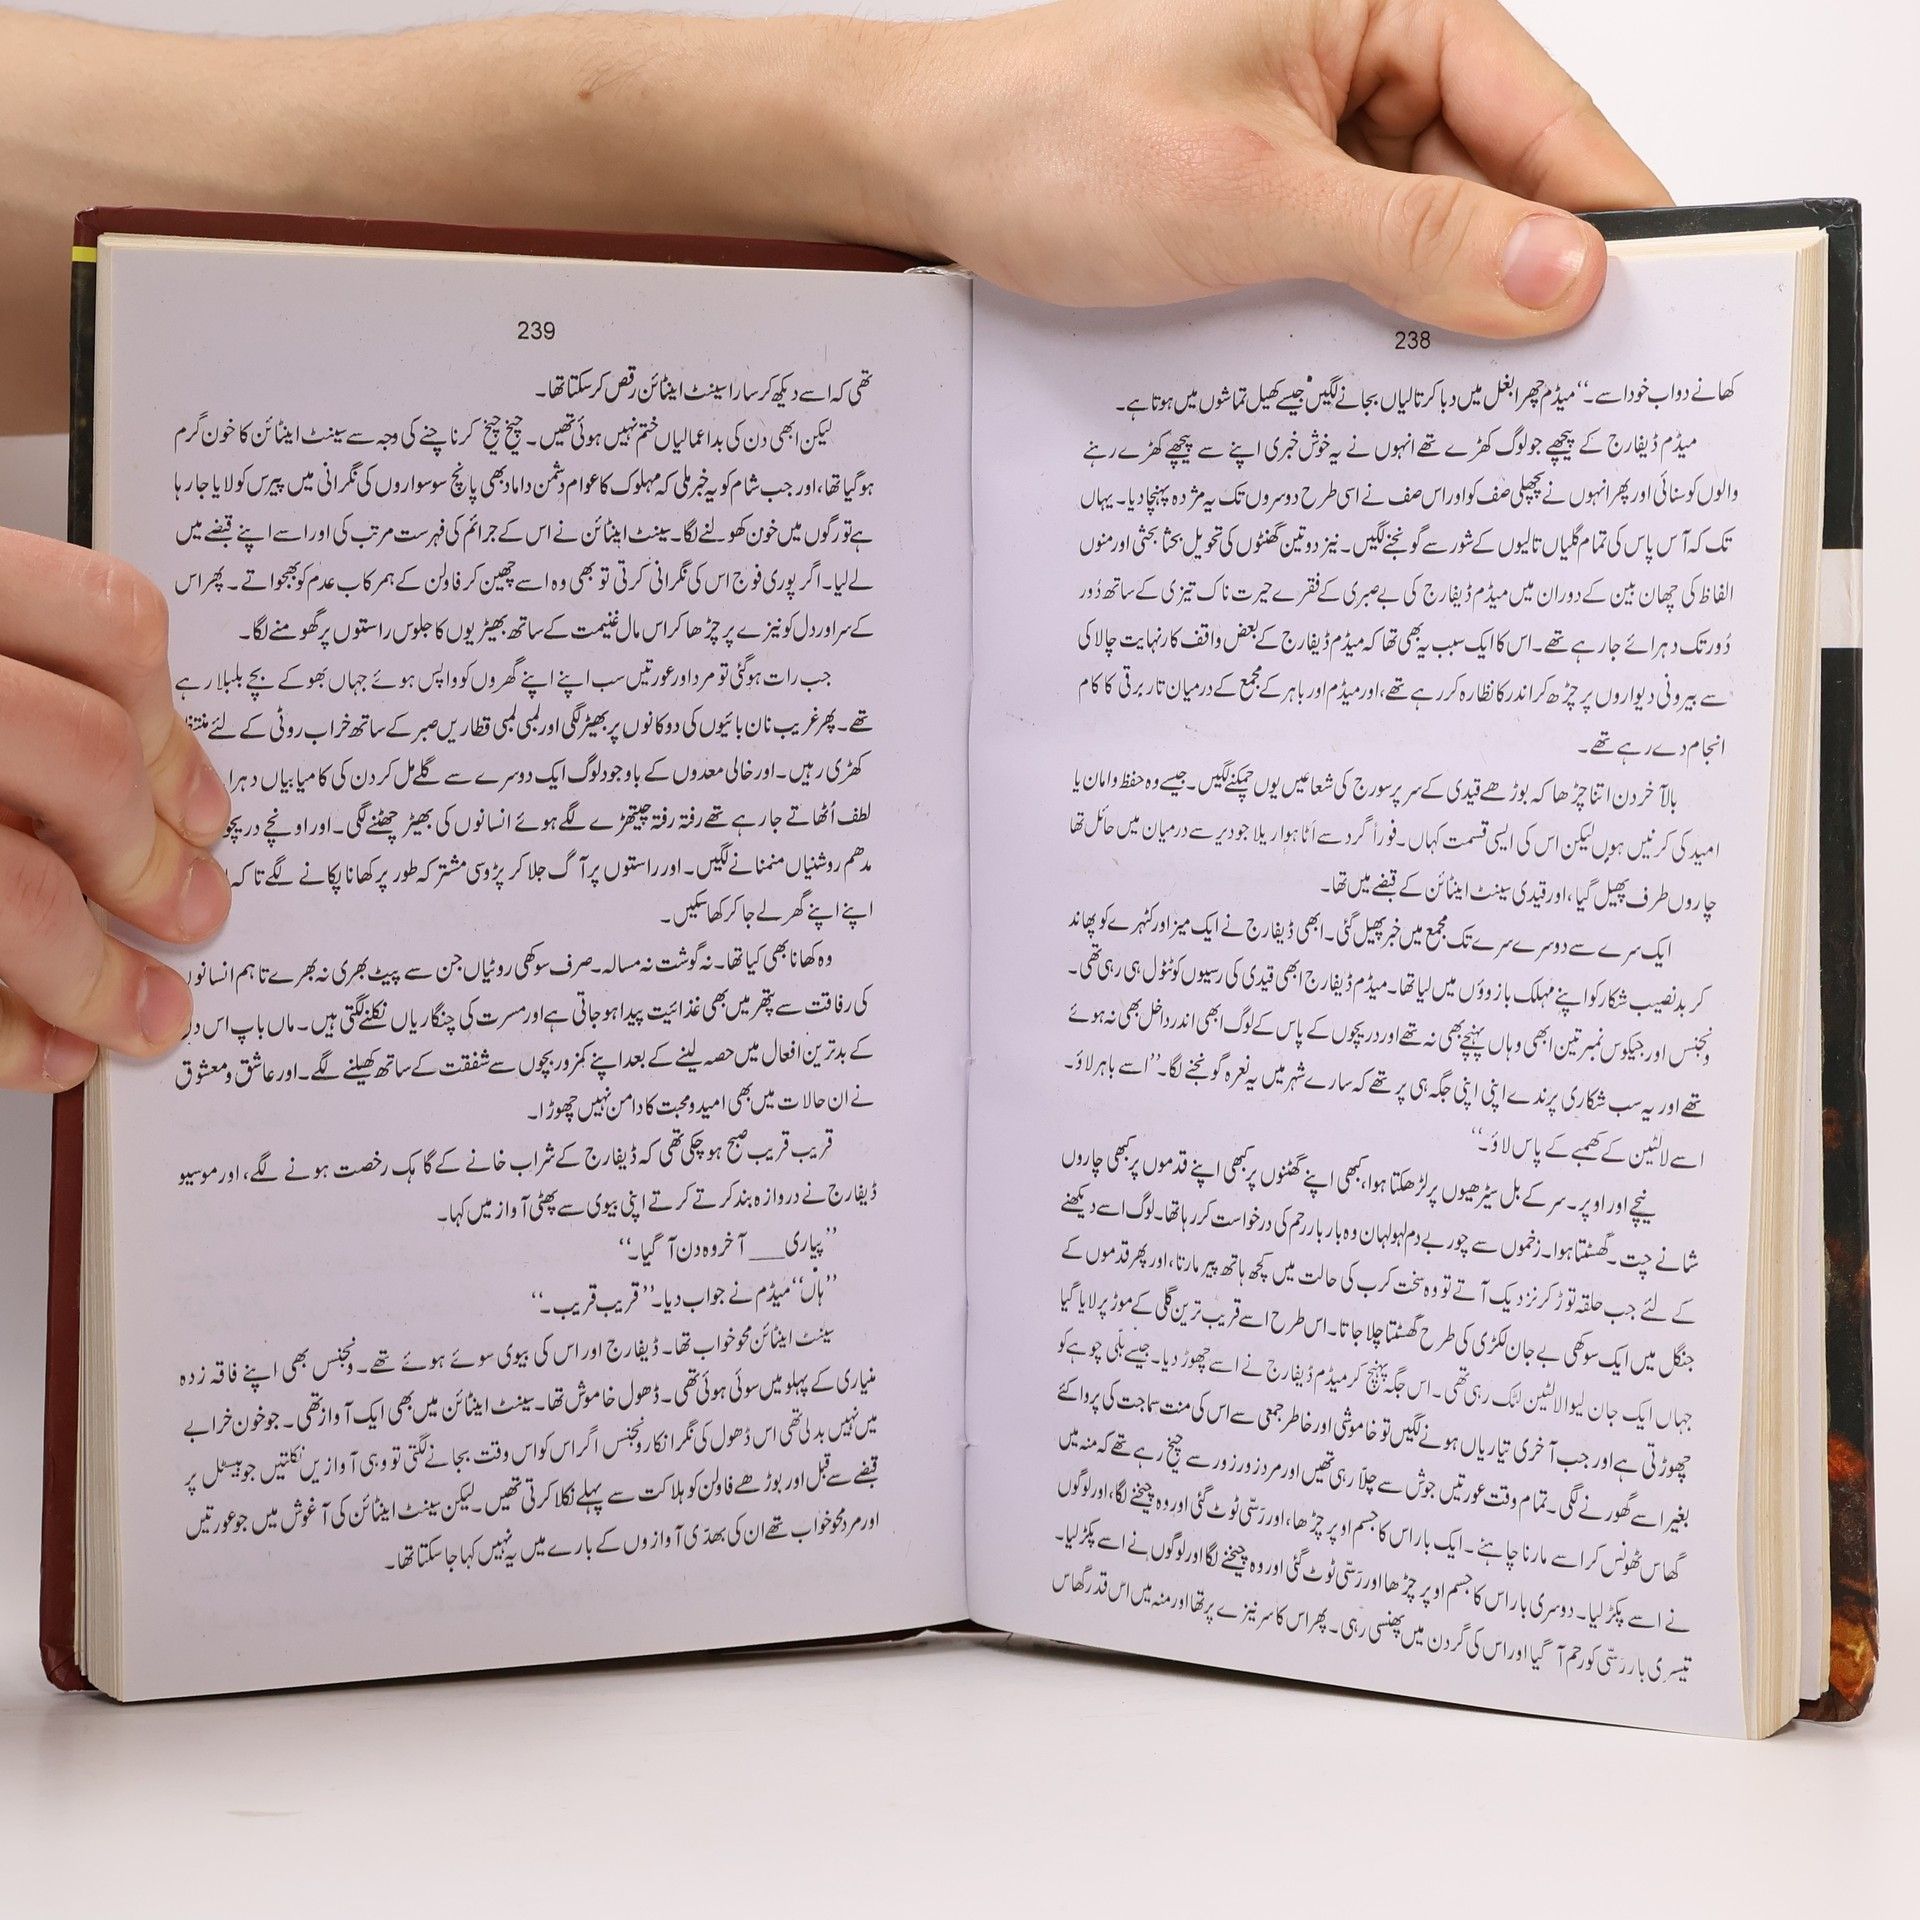 238
کھانے دو اب خود اسے۔‘‘ میڈم چھرا بغل میں دبا کر تالیاں بجانے لگیں جیسے کھیل تماشوں میں ہوتا ہے۔
میڈم ڈیفارج کے پیچھے جو لوگ کھڑے تھے انہوں نے یہ خوش خبری اپنے سے پیچھے کھڑے رہنے
والوں کو سنائی اور پھر انہوں نے پچھلی صف کو اور اس صف نے اسی طرح دوسروں تک یہ مژدہ پہنچا دیا۔ یہاں
تک کہ آس پاس کی تمام گلیاں تالیوں کے شور سے گونجنے لگیں۔ نیز دو تین گھنٹوں کی تحویل بحثا بحثی اور منوں
الفاظ کی چھان بین کے دوران میں میڈم ڈیفارج کی بے صبری کے فقرے حیرت ناک تیزی کے ساتھ دُور
دُور تک دہرائے جا رہے تھے۔ اس کا ایک سبب یہ بھی تھا کہ میڈم ڈیفارج کے بعض واقف کار نہایت چالاکی
سے بیرونی دیواروں پر چڑھ کر اندر کا نظارہ کر رہے تھے، اور میڈم اور باہر کے مجمع کے درمیان تار برقی کا کام
انجام دے رہے تھے۔
بالآخر دن اتنا چڑھا کہ بوڑھے قیدی کے سر پر سورج کی شعاعیں یوں چمکنے لگیں۔ جیسے وہ حفظ و امان یا
امید کی کرنیں ہوں لیکن اس کی ایسی قسمت کہاں۔ فوراً گرد سے اَٹا ہوا ریلا جو دیر سے درمیان میں حائل تھا
چاروں طرف پھیل گیا، اور قیدی سینٹ اینٹائن کے قبضے میں تھا۔
ایک سرے سے دوسرے سرے تک مجمع میں خبر پھیل گئی۔ ابھی ڈیفارج نے ایک میز اور کٹہرے کو پھاند
کر بدنصیب شکار کو اپنے مہلک بازوؤں میں لیا تھا۔ میڈم ڈیفارج ابھی قیدی کی رسیوں کو ٹٹول ہی رہی تھی۔
ونجنس اور جیکوس نمبر تین ابھی وہاں پہنچے بھی نہ تھے اور دریچوں کے پاس کے لوگ ابھی اندر داخل بھی نہ ہوئے
تھے اور یہ سب شکاری پرندے اپنی اپنی جگہ ہی پر تھے کہ سارے شہر میں یہ نعرہ گونجنے لگا۔ ’’اسے باہر لاؤ۔
اسے لالٹین کے کھمبے کے پاس لاؤ۔‘‘
نیچے اور اوپر۔ سر کے بل سیڑھیوں پر لڑھکتا ہوا، کبھی اپنے گھٹنوں پر کبھی اپنے قدموں پر کبھی چاروں
شانے چت۔ گھسٹتا ہوا۔ زخموں سے چور بے دم لہولہان وہ بار بار رحم کی درخواست کر رہا تھا۔ لوگ اسے دیکھنے
کے لئے جب حلقہ توڑ کر نزدیک آتے تو وہ سخت کرب کی حالت میں کچھ ہاتھ پیر مارتا، اور پھر قدموں کے
جنگل میں ایک سوکھی بے جان لکڑی کی طرح گھسٹتا چلا جاتا۔ اس طرح اسے قریب ترین گلی کے موڑ پر لایا گیا
جہاں ایک جان لیوا لالٹین لٹک رہی تھی۔ اس جگہ پہنچ کر میڈم ڈیفارج نے اسے چھوڑ دیا۔ جیسے بلّی چوہے کو
چھوڑتی ہے اور جب آخری تیاریاں ہونے لگیں تو خاموشی اور خاطر جمعی سے اس کی منت سماجت کی پروا کئے
بغیر اسے گھورنے لگی۔ تمام وقت عورتیں جوش سے چلّا رہی تھیں اور مرد زور زور سے چیخ رہے تھے کہ منہ میں
گھاس ٹھونس کر اسے مارنا چاہئے۔ ایک بار اس کا جسم اوپر چڑھا، اور رسّی ٹوٹ گئی اور وہ چیخنے لگا، اور لوگوں
نے اسے پکڑ لیا۔ دوسری بار اس کا جسم اوپر چڑھا اور رسّی ٹوٹ گئی اور وہ چیخنے لگا اور لوگوں نے اسے پکڑ لیا۔
تیسری بار رسّی کو رحم آ گیا اور اس کی گردن میں پھنسی رہی۔ پھر اس کا سر نیزے پر تھا اور منہ میں اس قدر گھاس
239
تھی کہ اسے دیکھ کر سارا سینٹ اینٹائن رقص کر سکتا تھا۔
لیکن ابھی دن کی بداعمالیاں ختم نہیں ہوئی تھیں۔ چیخ چیخ کر ناچنے کی وجہ سے سینٹ اینٹائن کا خون گرم
ہو گیا تھا، اور جب شام کو یہ خبر ملی کہ مہلوک کا عوام دشمن داماد بھی پانچ سو سواروں کی نگرانی میں پیرس کو لایا جا رہا
ہے تو رگوں میں خون کھولنے لگا۔ سینٹ اینٹائن نے اس کے جرائم کی فہرست مرتب کی اور اسے اپنے قبضے میں
لے لیا۔ اگر پوری فوج اس کی نگرانی کرتی تو بھی وہ اسے چھین کر فاولن کے ہمرکاب عدم کو بھجواتے۔ پھر اس
کے سر اور دل کو نیزے پر چڑھا کر اس مال غنیمت کے ساتھ بھیڑیوں کا جلوس راستوں پر گھومنے لگا۔
جب رات ہو گئی تو مرد اور عورتیں سب اپنے اپنے گھروں کو واپس ہوئے جہاں بھوکے بچے بلبلا رہے
تھے۔ پھر غریب نان بائیوں کی دوکانوں پر بھیڑ لگی اور لمبی لمبی قطاریں صبر کے ساتھ خراب روٹی کے لئے
کھڑی رہیں۔ اور خالی معدوں کے باوجود لوگ ایک دوسرے سے گلے مل کر دن کی کامیابیاں دہرا
لطف اُٹھاتے جا رہے تھے رفتہ رفتہ چیتھڑے لگے ہوئے انسانوں کی بھیڑ چھٹنے لگی۔ اور اونچے
مدھم روشنیاں منمنانے لگیں۔ اور راستوں پر آگ جلا کر پڑوسی مشترکہ طور پر کھانا پکانے لگے تاکہ
اپنے اپنے گھر لے جا کر کھا سکیں۔
وہ کھانا بھی کیا تھا۔ نہ گوشت نہ مسالہ۔ صرف سوکھی روٹیاں جن سے پیٹ بھری نہ بھرے تاہم انسانوں
کی رفاقت سے پتھر میں بھی غذائیت پیدا ہو جاتی ہے اور مسرت کی چنگاریاں نکلنے لگتی ہیں۔ ماں باپ اس دن
کے بدترین افعال میں حصہ لینے کے بعد اپنے کمزور بچوں سے شفقت کے ساتھ کھیلنے لگے۔ اور عاشق و معشوق
نے ان حالات میں بھی امید و محبت کا دامن نہیں چھوڑا۔
قریب قریب صبح ہو چکی تھی کہ ڈیفارج کے شراب خانے کے گاہک رخصت ہونے لگے، اور موسیو
ڈیفارج نے دروازہ بند کرتے کرتے اپنی بیوی سے پھٹی آواز میں کہا۔
’’پیاری___ آخر وہ دن آ گیا۔‘‘
’’ہاں‘‘ میڈم نے جواب دیا۔ ’’قریب قریب۔‘‘
سینٹ اینٹائن محو خواب تھا۔ ڈیفارج اور اس کی بیوی سوئے ہوئے تھے۔ ونجنس بھی اپنے فاقہ زدہ
منیاری کے پہلو میں سوئی ہوئی تھی۔ ڈھول خاموش تھا۔ سینٹ اینٹائن میں بھی ایک آواز تھی۔ جو خون خرابے
میں نہیں بدلی تھی اس ڈھول کی نگرانکار ونجنس اگر اس کو اس وقت بجانے لگتی تو وہی آوازیں نکلتیں جو بیسٹل پر
قبضے سے قبل اور بوڑھے فاولن کو ہلاکت سے پہلے نکلا کرتی تھیں۔ لیکن سینٹ اینٹائن کی آغوش میں جو عورتیں
اور مرد محو خواب تھے ان کی بھدّی آوازوں کے بارے میں یہ نہیں کہا جا سکتا تھا۔